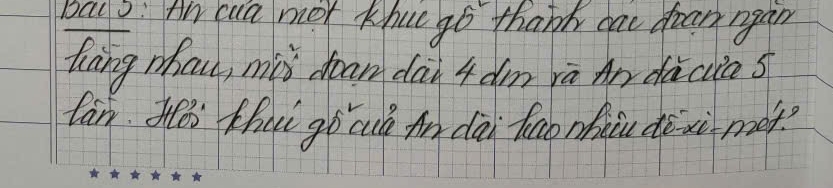 Bài 5: An cưa một khúc gỗ thành các đoạn ngắn
bằng nhau, mỗi đoạn dài 4 dm và An đã cưa 5
lần. Hỏi khúc gỗ của An dài bao nhiêu đề-xi-mét?